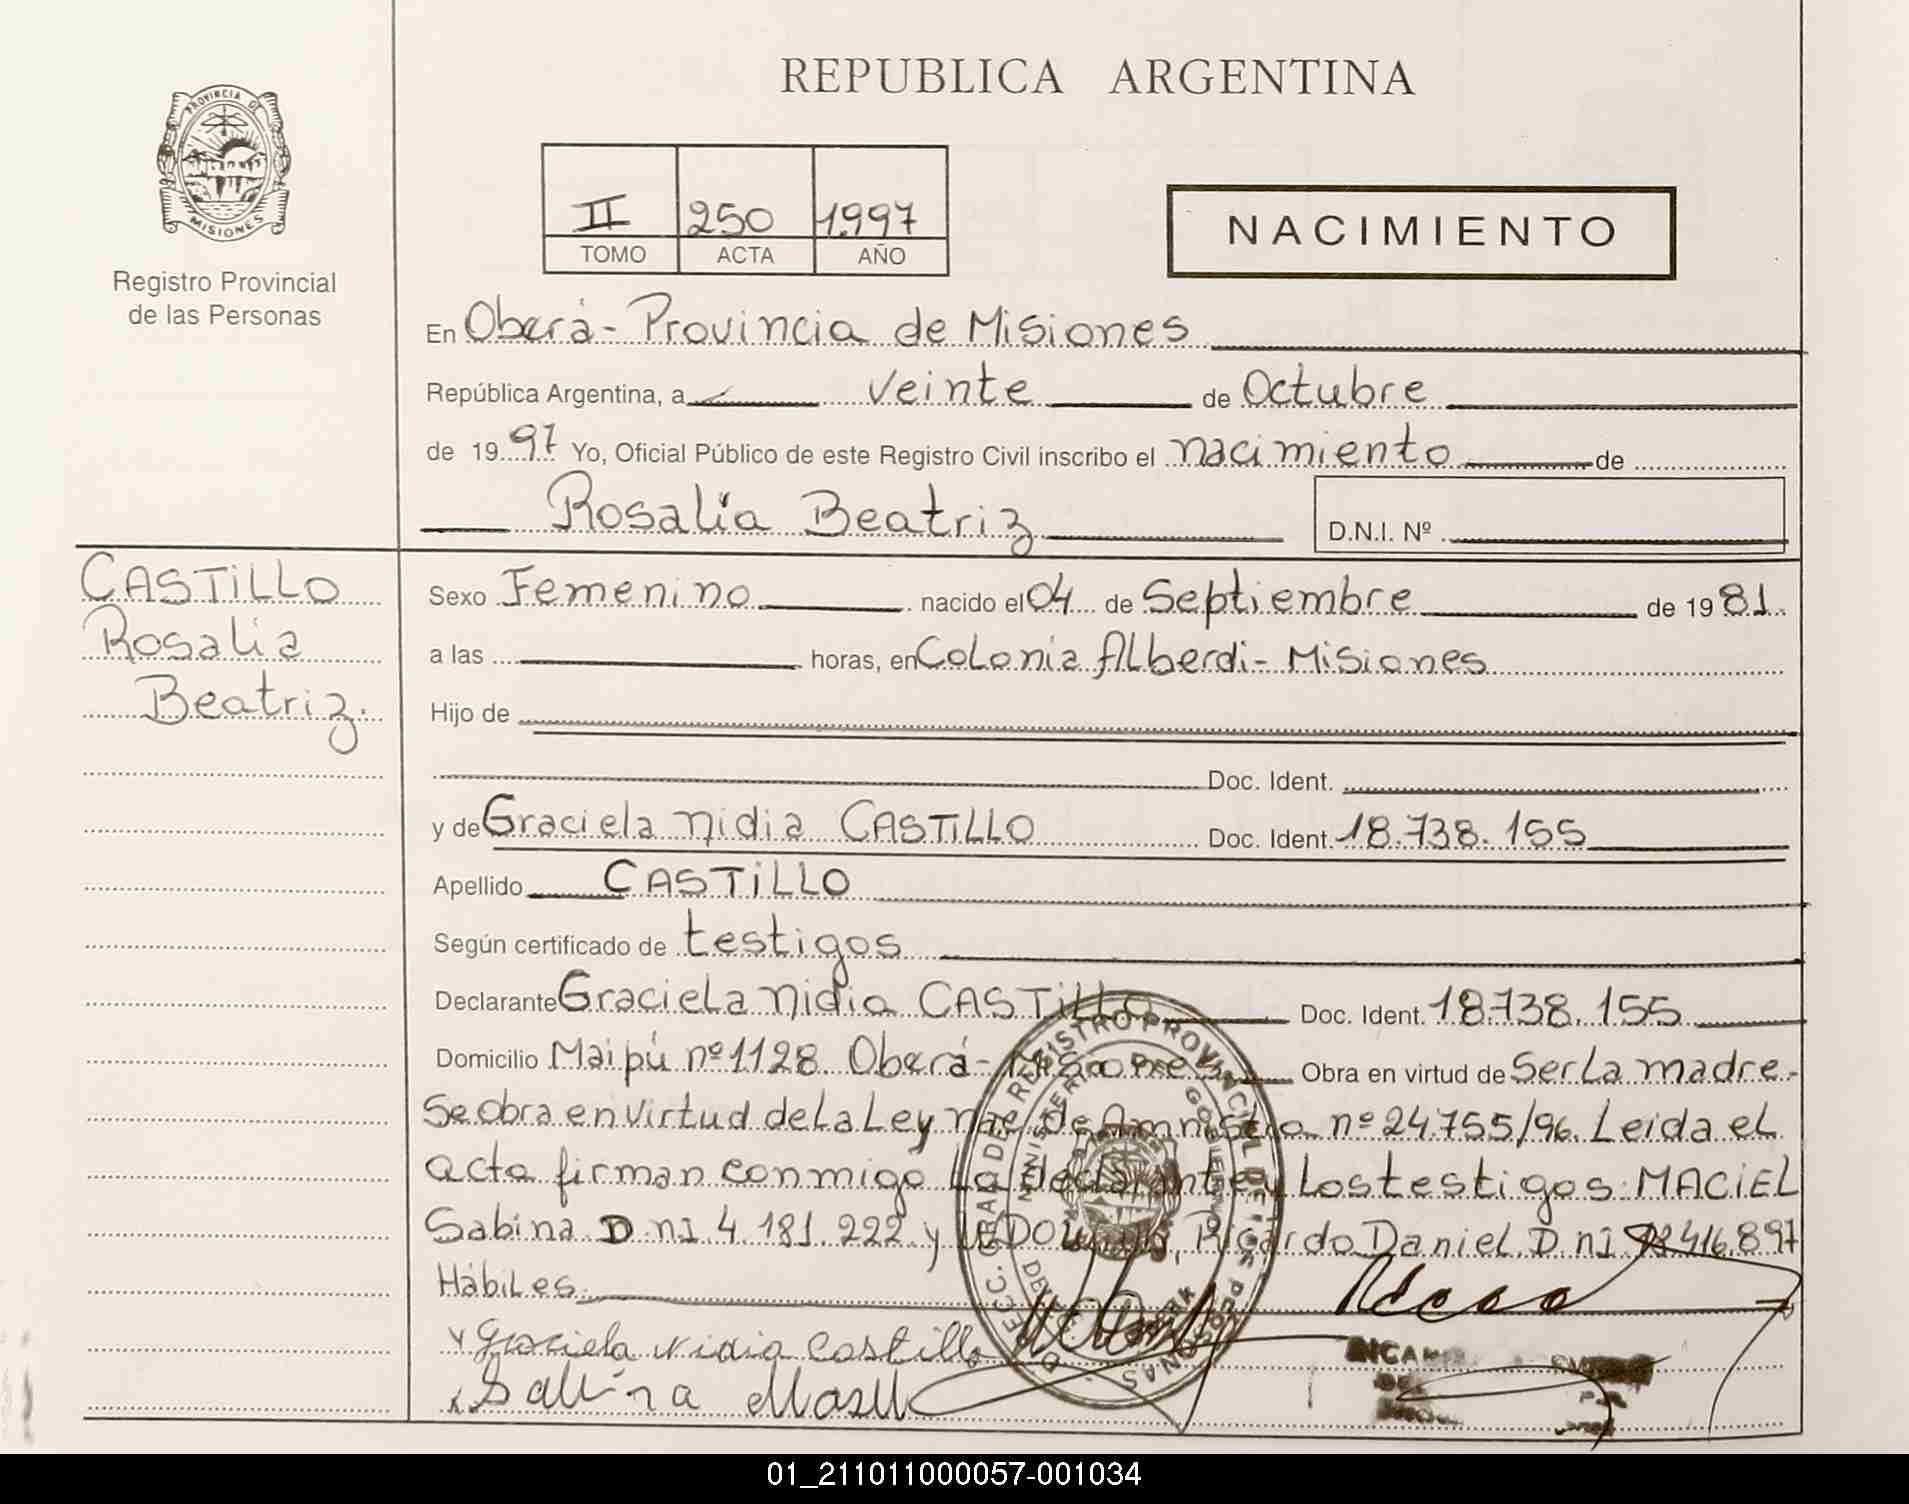 PROVINCIA DE
MISIONES
Registro Provincial
de las Personas
REPUBLICA ARGENTINA
II 250 1997
TOMO ACTA AÑO
NACIMIENTO
En Oberá - Provincia de Misiones
República Argentina, a veinte de Octubre
de 1997 Yo, Oficial Público de este Registro Civil inscribo el nacimiento de
Rosalía Beatriz D.N.I. Nº
CASTILLO
Rosalia
Beatriz.
Sexo Femenino nacido el 04 de Septiembre de 1981.
a las horas, en Colonia Alberdi - Misiones
Hijo de
Doc. Ident.
y de Graciela Nidia CASTILLO Doc. Ident. 18.738.155
Apellido CASTILLO
Según certificado de testigos
Declarante Graciela Nidia CASTILLO Doc. Ident. 18.738.155
Domicilio Maipú nº 1128 Oberá - Misiones Obra en virtud de Ser La madre.
Se Obra en Virtud de La Ley Nac de Amnistia nº 24.755/96. Leida el
acta firman conmigo La declarante y Los testigos: MACIEL
Sabina D.NI 4.181.222 y Ricardo Daniel D.NI 416.897
Hábiles
Graciela Nidia Castillo
Sabina
REGISTRO PROVINCIAL DE LAS PERSONAS
MINISTERIO DE GOBIERNO
01_211011000057-001034